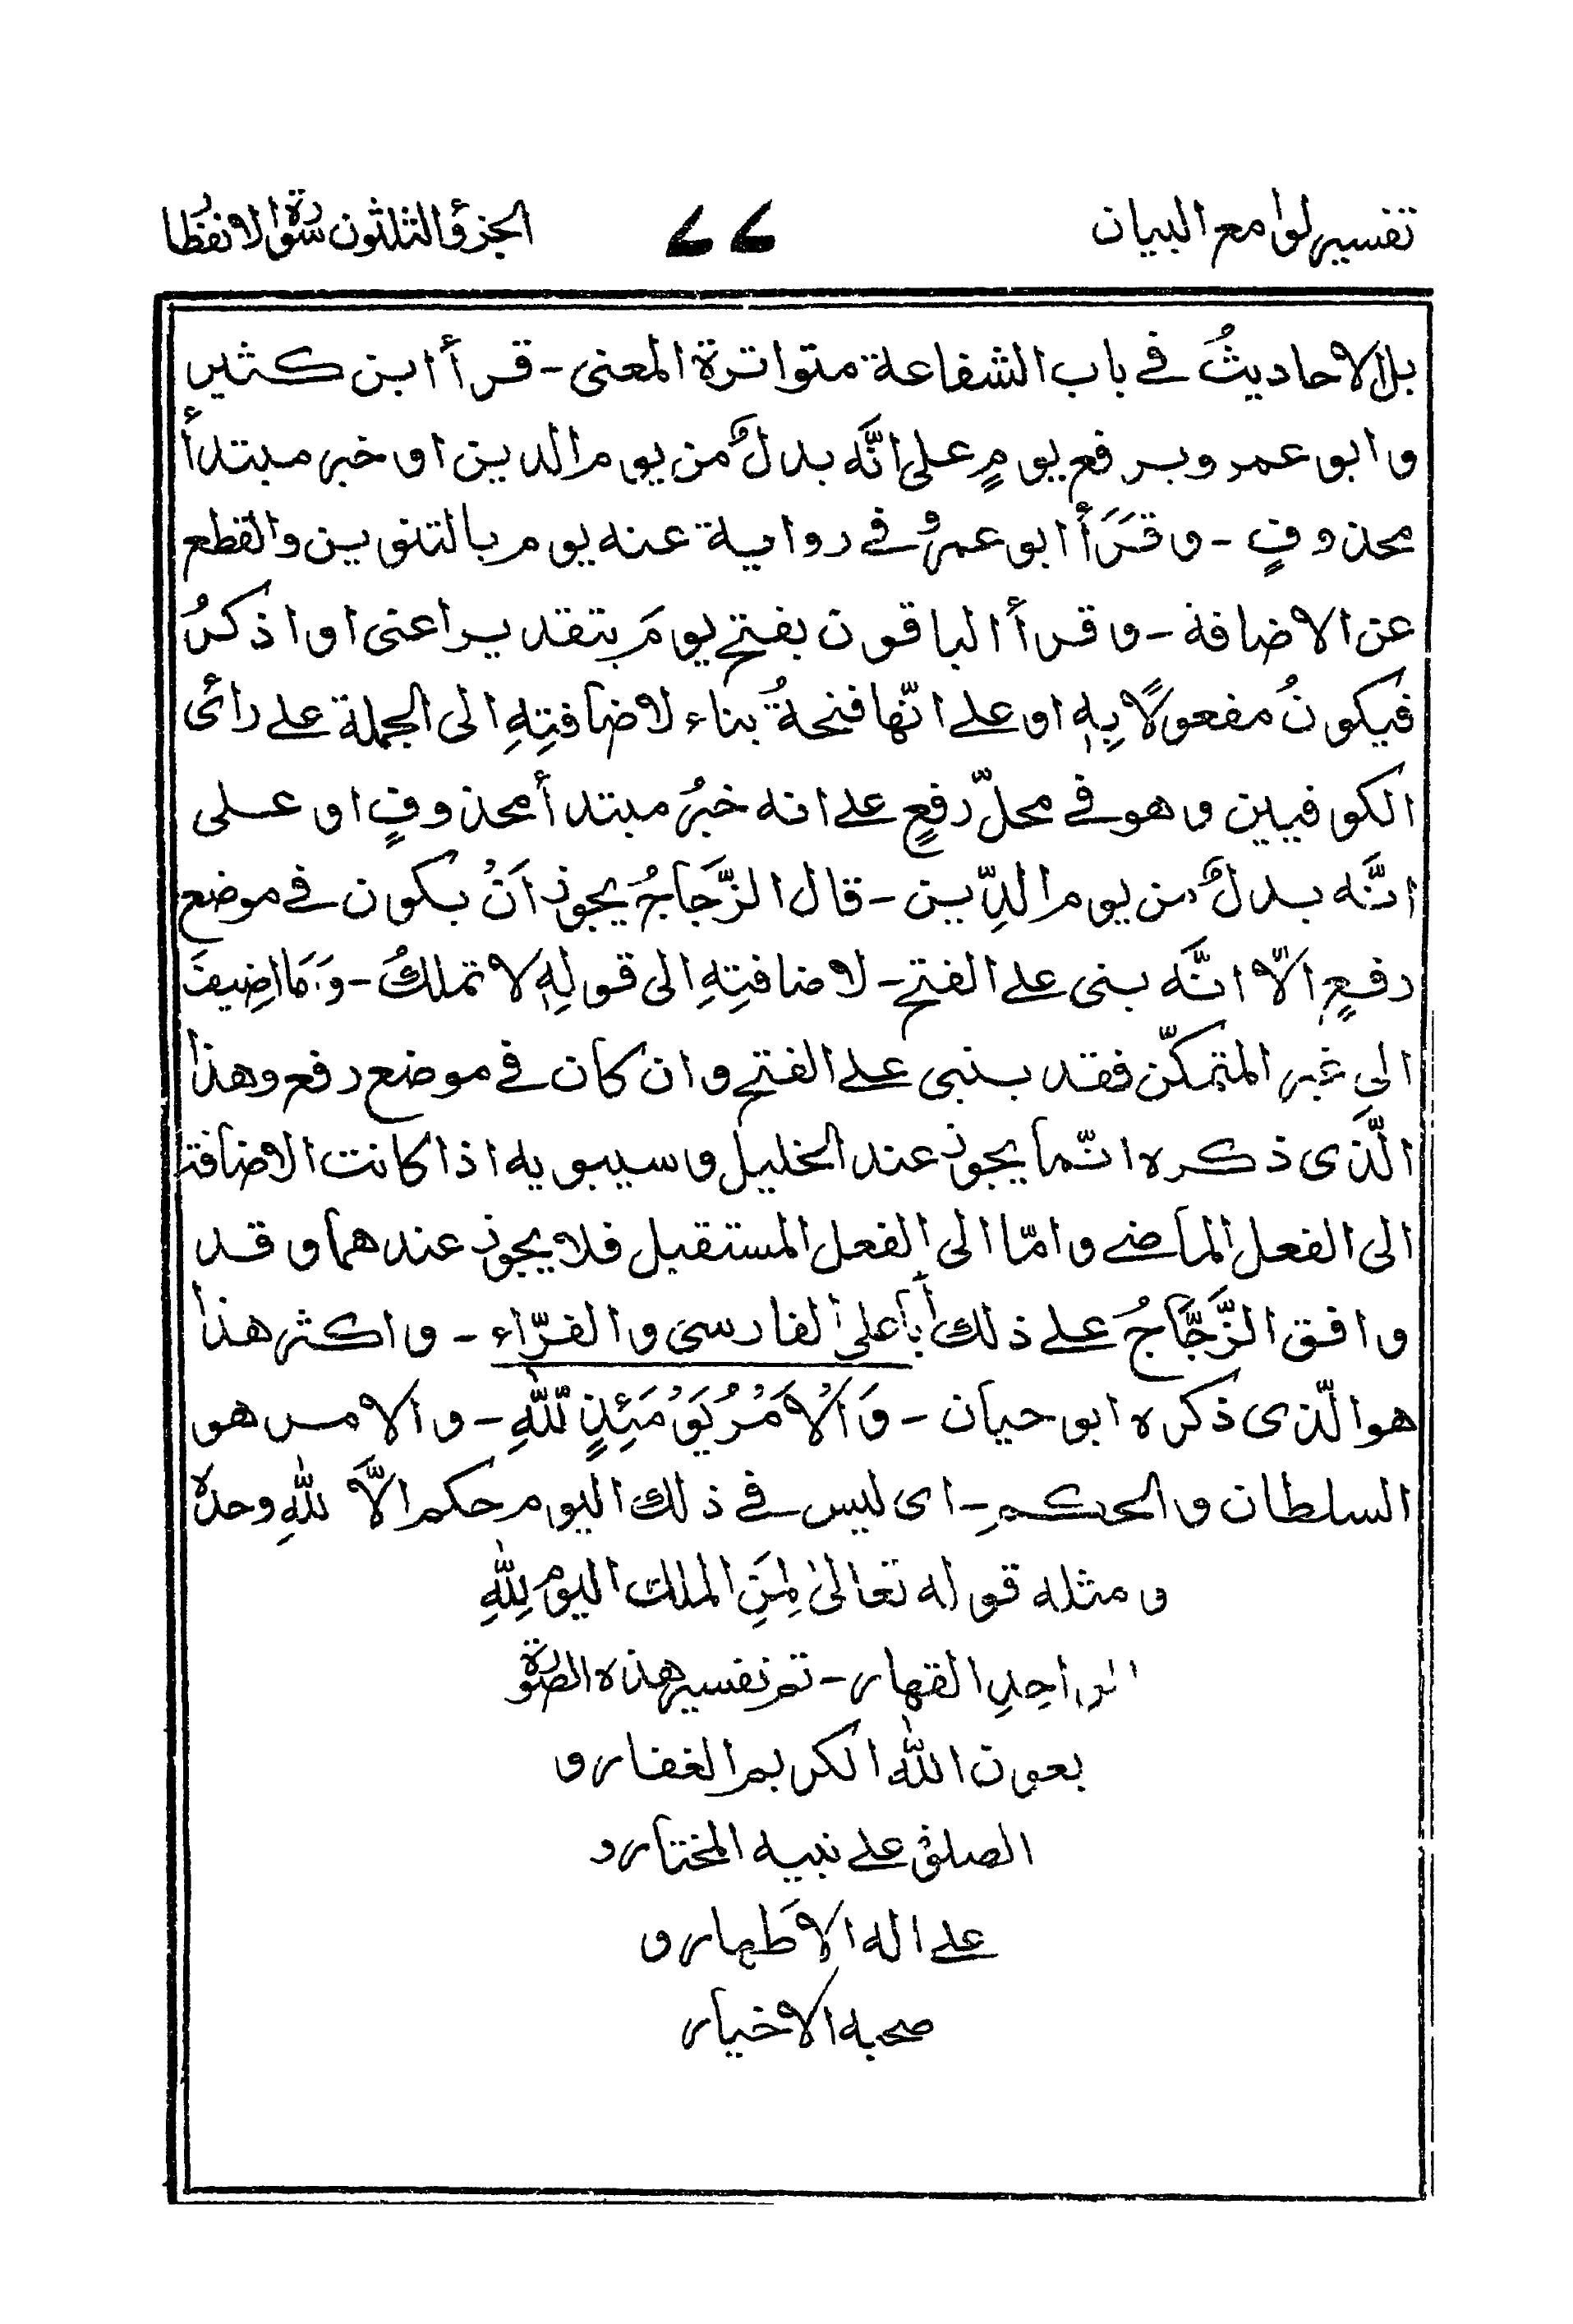 تفسير لوامع البيان ٧٧ الجزؤ الثلثون سورة الانفطار
بل الاحاديثُ في باب الشفاعة متواترة المعنى - قرأ ابن كثير
وابو عمرو برفع يومٍ على انَّه بدلٌ من يوم الدين او خبر مبتدأ
محذوفٍ - وقَرَأَ ابو عمرٌو في رواية عنه يوم بالتنوين والقطع
عن الاضافة - وقرأ الباقون بفتح يومَ بتقدير اعنى او اذكرُ
فيكونُ مفعولًا بِهٖ او على انّها فتحةُ بناء لاضافتِهِ الى الجملة على رأى
الكوفيين وهو في محلّ رفعٍ على انه خبرُ مبتدأ محذوفٍ او على
انَّه بدلٌ من يوم الدِّين - قال الزَّجاجُ يجوز اَنْ يكون في موضع
رفعٍ الّا انَّه بنى على الفتح - لاضافتِهِ الى قولِهٖ لا تملكُ - وَمَا اضِيفَ
الى غير المتمكّن فقد يبنى على الفتح وان كان في موضع رفع وهذا
الّذى ذكره انّما يجوز عند الخليل وسيبويه اذا كانت الاضافة
الى الفعل الماضى وامّا الى الفعل المستقبل فلا يجوز عندهما وقد
وافق الزَّجَّاجُ على ذلك أبا على الفارسى والفرّاء - واكثر هذا
هو الّذى ذكره ابو حيان - وَالْاَمْرُ يَوْمَئِذٍ لّلّٰهِ - والامر هو
السلطان والحكم - اى ليس في ذلك اليوم حكم الَّا للّٰهِ وحدهٗ
ومثله قوله تعالىٰ لِمَنِ الملك اليوم لِلّٰهِ
الواحِدِ القهار - تم تفسير هذه الصورة
بعون اللّٰه الكريم الغفار و
الصلوٰة على نبيه المختار و
على اله الاَطهار و
صحبه الاخيار